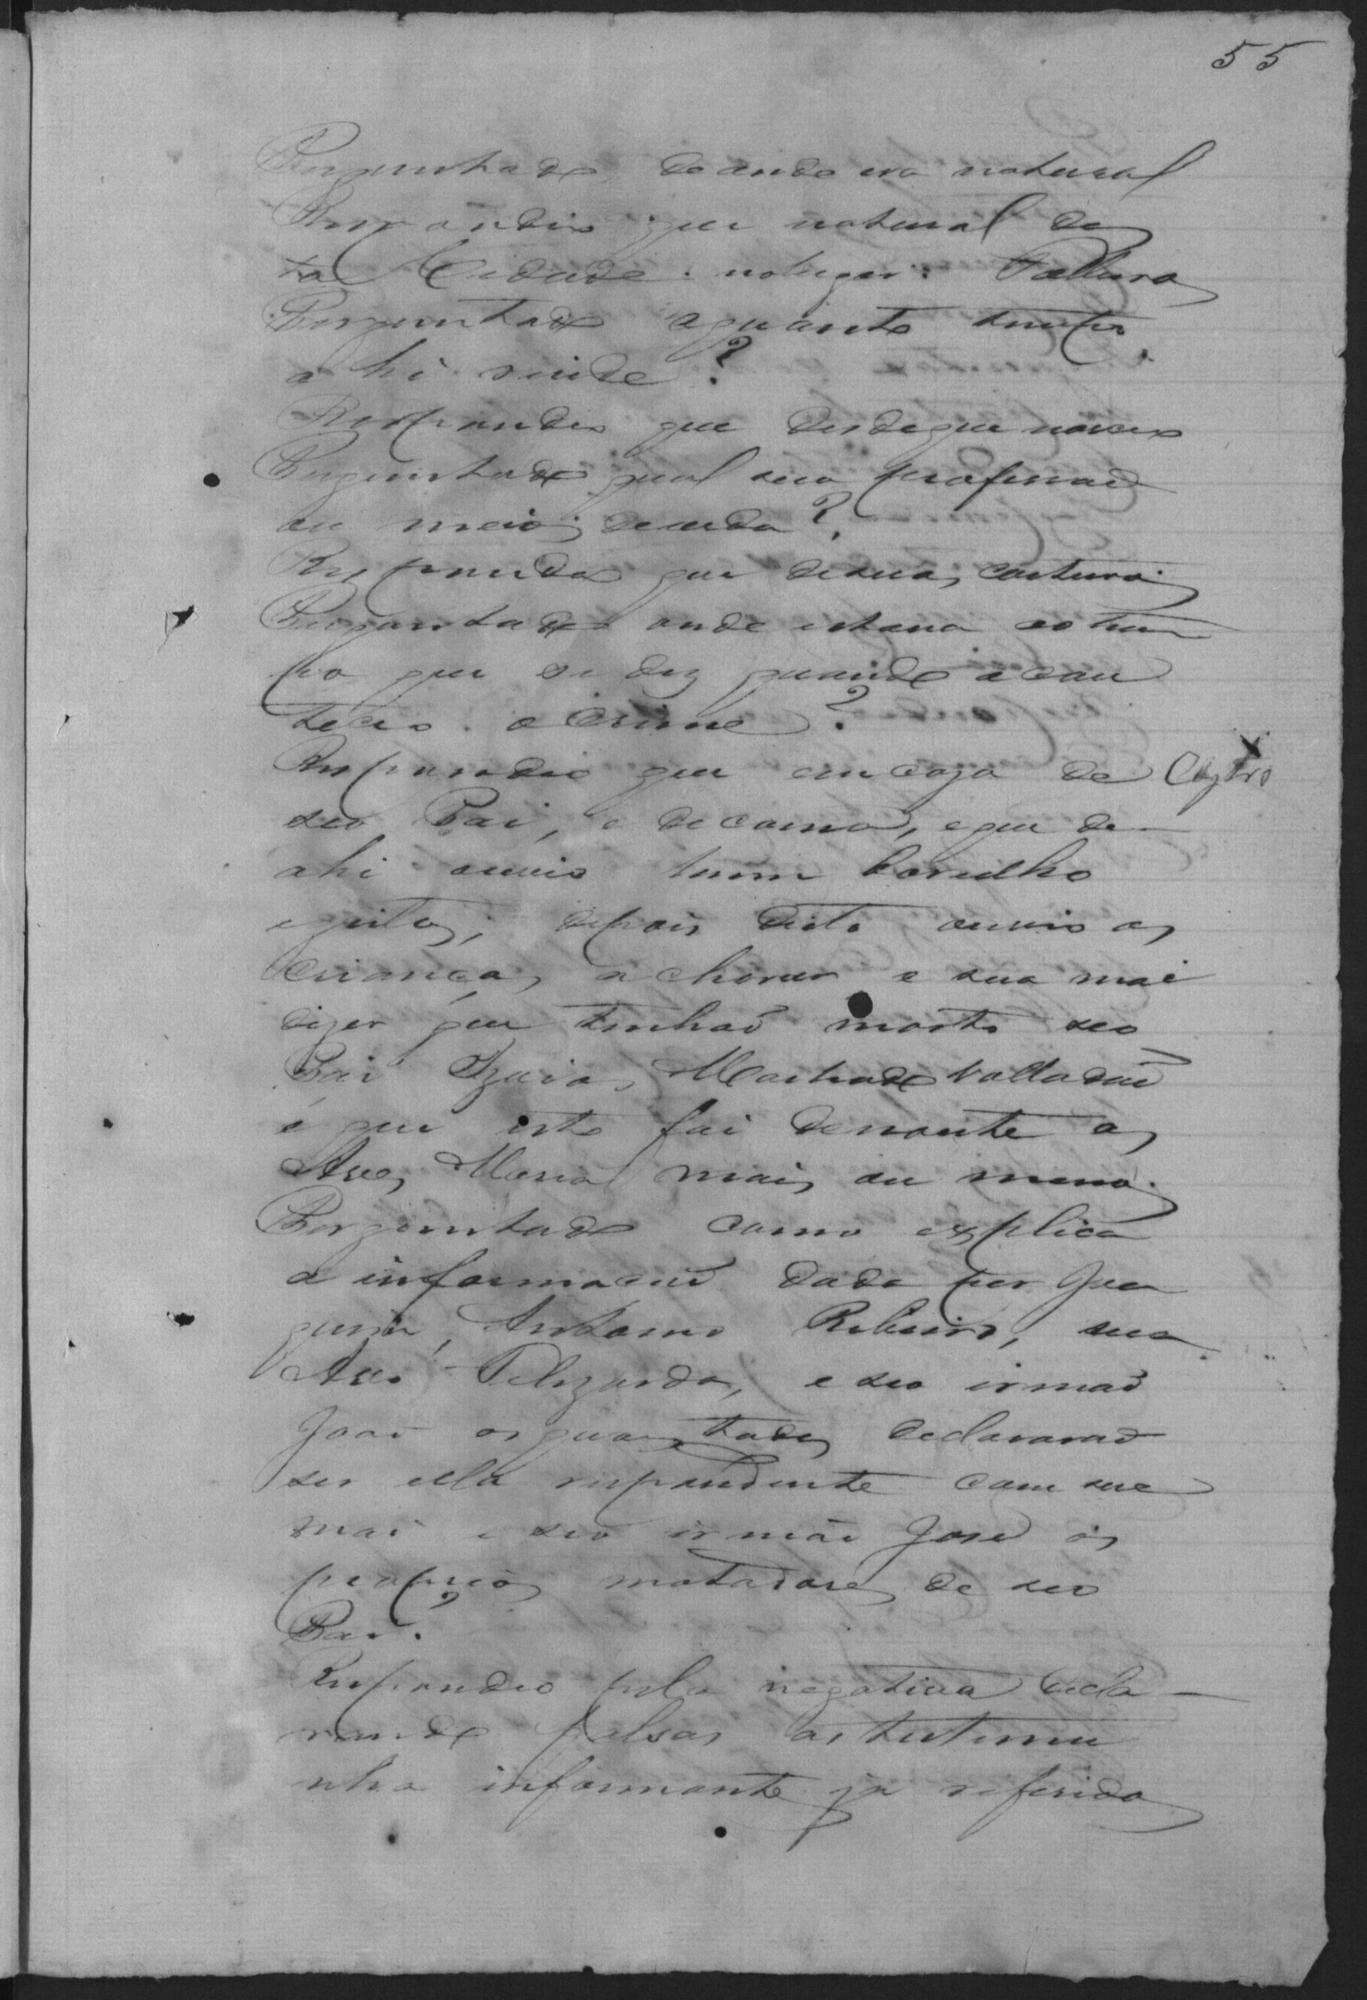 55
Perguntado de onde era natural
Respondeo que natural des
ta Cidade no lugar
Perguntado a quanto tempo
ahi reside?
Respondeo que desde que nasceo
Perguntado qual sua profissaõ
ou meio de vida?
Respondeo que de suas costuras
Perguntado onde estava ao tem
po que se diz quando acon
teceo o crime?
Respondeo que em caza de
Castro
seo Pai, e de cama, e que de
ahi ouvio hum barulho
e gritos, depois disto ouvio as
crianças a chorar e sua mai
dizer que tinhaõ morto seo
Pai Izaias Machado Valladaõ
e que isto foi de noute as
Aves Maria mais ou menos.
Perguntado como explica
a informaçaõ dada por Joa
quim Antonio Ribeiro, sua
Avó Felizarda, e seo irmaõ
Joaõ os quaes todos declararaõ
ser ella respondente com sua
mai e seo irmaõ José os
proprios matadores de seo
Pai?
Respondeo pela negativa decla
rando falsas as testemu
nhas informante ja referida